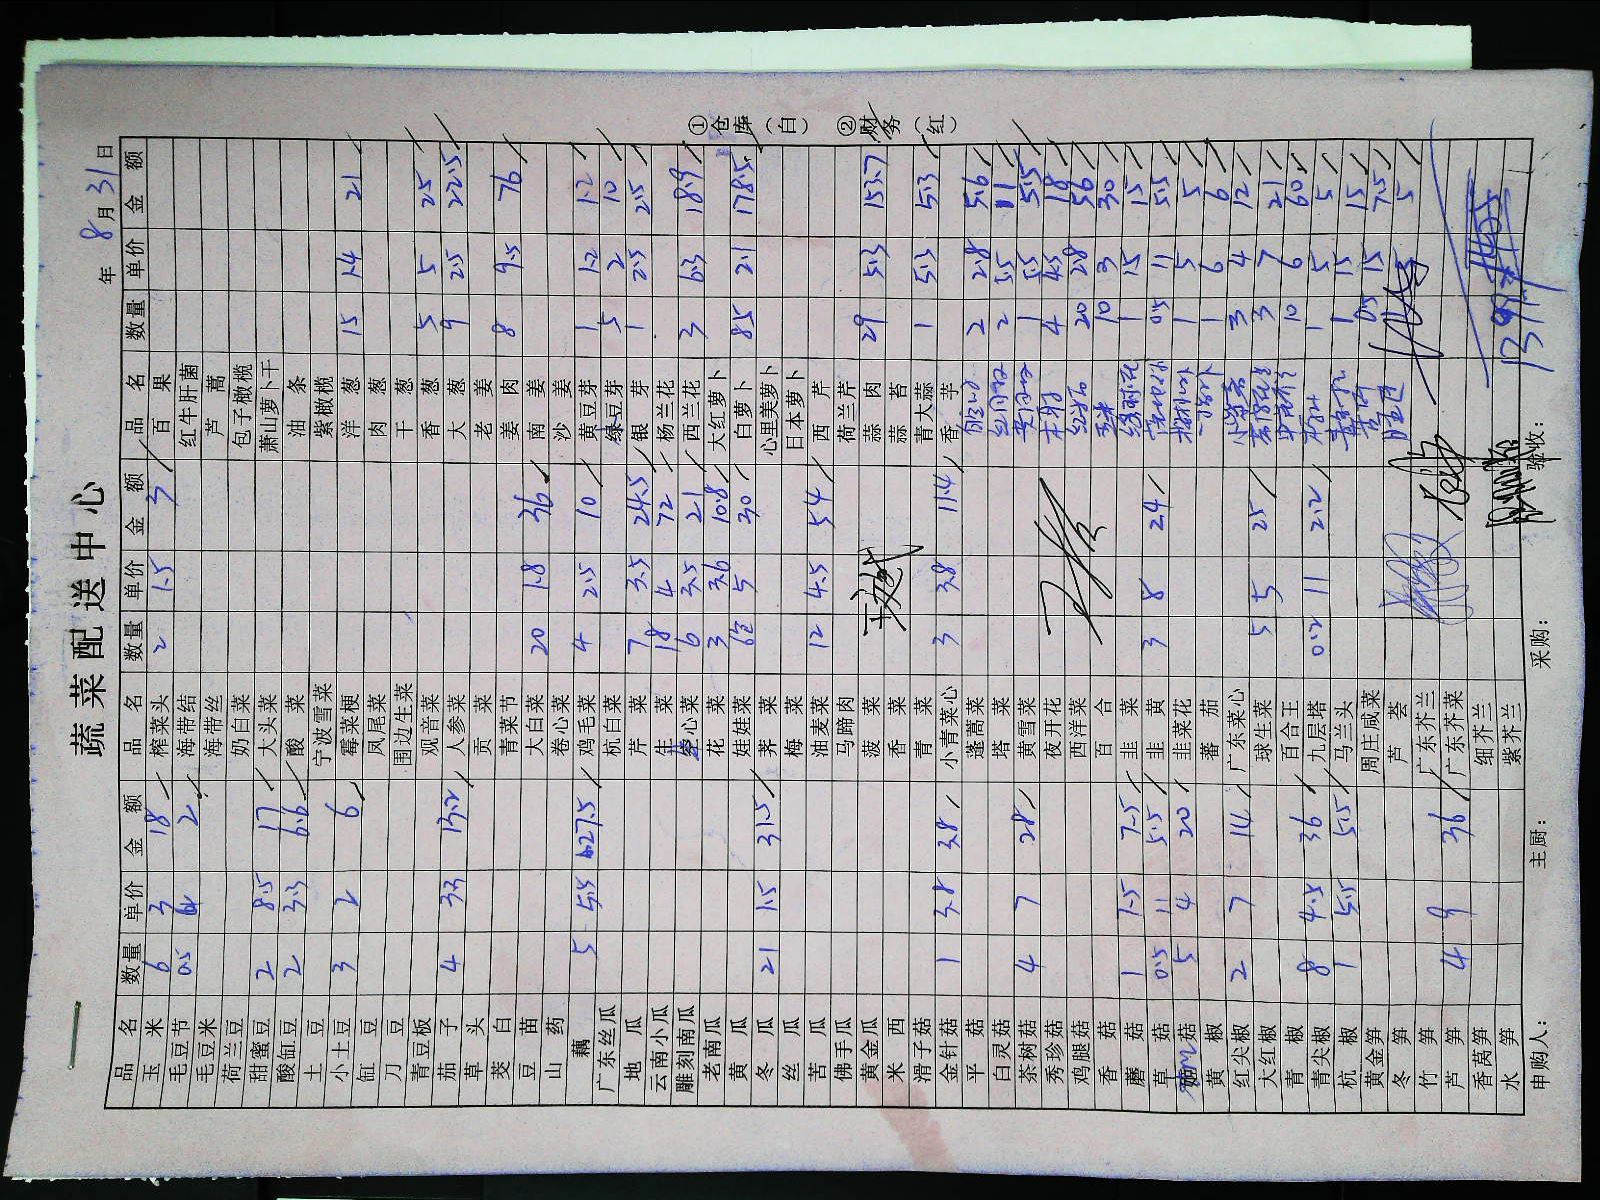 蔬菜配送中心
年 8月31日
品名 数量 单价 金额 品名 数量 单价 金额 品名 数量 单价 金额
玉米 6 3 18 榨菜头 2 1.5 3 百果
毛豆节 0.5 4 2 海带结 红牛肝菌
毛豆米 海带丝 芦蒿
荷兰豆 奶白菜 包子橄榄
甜蜜豆 2 8.5 17 大头菜 萧山萝卜干
酸缸豆 2 3.3 6.6 酸菜 油条
土豆 宁波雪菜 紫橄榄
小土豆 3 2 6 霉菜梗 洋葱 15 1.4 21
缸豆 凤尾菜 肉葱
刀豆 围边生菜 干葱
青豆板 观音菜 香葱 5 5 25
茄子 4 3.3 13.2 人参菜 大葱 9 2.5 22.5
草头 贡菜 老姜
茭白 青菜节 姜肉 8 9.5 76
豆苗 大白菜 20 1.8 36 南姜
山药 卷心菜 沙姜
藕 5 5.5 27.5 鸡毛菜 4 2.5 10 黄豆芽 1 1.2 1.2
广东丝瓜 杭白菜 绿豆芽 5 2 10
地瓜 芹菜 7 3.5 24.5 银芽 1 2.5 2.5
云南小瓜 生菜 18 4 72 杨兰花
雕刻南瓜 空心菜 6 3.5 21 西兰花 3 6.3 18.9
老南瓜 花菜 3 3.6 10.8 大红萝卜
黄瓜 娃娃菜 6包 5 30 白萝卜 85 2.1 178.5
冬瓜 21 1.5 31.5 荠菜 心里美萝卜
丝瓜 梅菜 日本萝卜
苦瓜 油麦菜 12 4.5 54 西芹
佛手瓜 马蹄肉 荷兰芹
黄金瓜 菠菜 蒜肉 29 5.3 153.7
米西 香菜 蒜苔
滑子菇 青菜 青大蒜 1 5.3 5.3
金针菇 1 3.8 3.8 小青菜心 3 3.8 11.4 香芋
平菇 蓬蒿菜 2 2.8 5.6
白灵菇 塔菜 2 5.5 11
茶树菇 4 7 28 黄雪菜 1 5.5 5.5
秀珍菇 夜开花 4 4.5 18
鸡腿菇 西洋菜 20 2.8 56
香菇 百合 10 3 30
蘑菇 1 7.5 7.5 韭菜 1 15 15
草菇 0.5 11 5.5 韭黄 3 8 24 0.5 11 5.5
菇 5 4 20 韭菜花 1 5 5
黄椒 蕃茄 1 6 6
红尖椒 2 7 14 广东菜心 3 4 12
大红椒 球生菜 5 5 25 3 7 21
青椒 百合王 10 6 60
青尖椒 8 4.5 36 九层塔 0.2 11 2.2 1 5 5
杭椒 1 5.5 5.5 马兰头 1 15 15
黄金笋 周庄咸菜 0.5 15 7.5
冬笋 芦荟 5
竹笋 广东芥兰
芦笋 4 9 36 广东芥菜
香莴笋 细芥兰
水笋 紫芥兰
申购人： 主厨： 采购： 验收：
①仓库（白） ②财务（红）